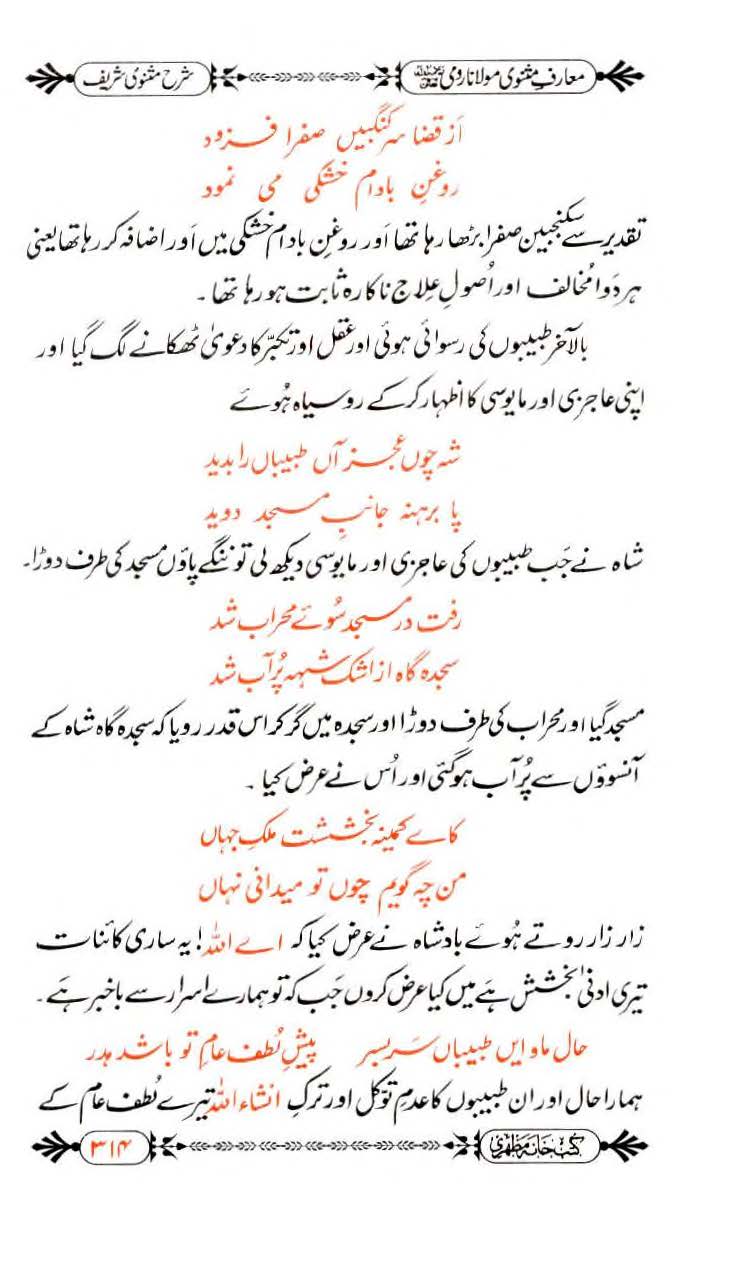 معارفِ مثنوی مولانا رومی رحمۃ اللہ علیہ
شرح مثنوی شریف
اَز قضا سرکنگبیں صفرا فزود
روغنِ بادام خشکی می نمود
تقدیر سے سکنجبین صفرا بڑھا رہا تھا اَور روغنِ بادام خشکی میں اَور اضافہ کر رہا تھا یعنی
ہر دَوا مُخالف اور اُصولِ عِلاج ناکارہ ثابت ہو رہا تھا ۔
بالآخر طبیبوں کی رسوائی ہوئی اور عقل اور تکبّر کا دعویٰ ٹھکانے لگ گیا اور
اپنی عاجزی اور مایوسی کا اظہار کرکے روسیاہ ہُوئے
شہ چوں عجز آں طبیباں را بدید
پا برہنہ جانبِ مسجد دوید
شاہ نے جَب طبیبوں کی عاجزی اور مایوسی دیکھ لی تو ننگے پاؤں مسجد کی طرف دوڑا۔
رفت در مسجد سُوئے محراب شد
سجدہ گاہ از اشک شہہ پُر آب شد
مسجد گیا اور محراب کی طرف دوڑا اور سجدہ میں گر کر اس قدر رویا کہ سجدہ گاہ شاہ کے
آنسوؤں سے پُر آب ہوگئی اور اُس نے عرض کیا ۔
کاے کمینہ بخششت ملکِ جہاں
من چہ گویم چوں تو میدانی نہاں
زار زار روتے ہُوئے بادشاہ نے عرض کیا کہ اے اللہ! یہ ساری کائنات
تیری ادنیٰ بخشش ہَے میں کیا عرض کروں جَب کہ تو ہمارے اسرار سے باخبر ہَے۔
حال ماو ایں طبیباں سَر بسر پیشِ لُطف عامِ تو باشد ہدر
ہمارا حال اور ان طبیبوں کا عدمِ توکل اور ترکِ انشاء اللہ تیرے لُطف عام کے
کتب خانہ مظہری
۳۱۴